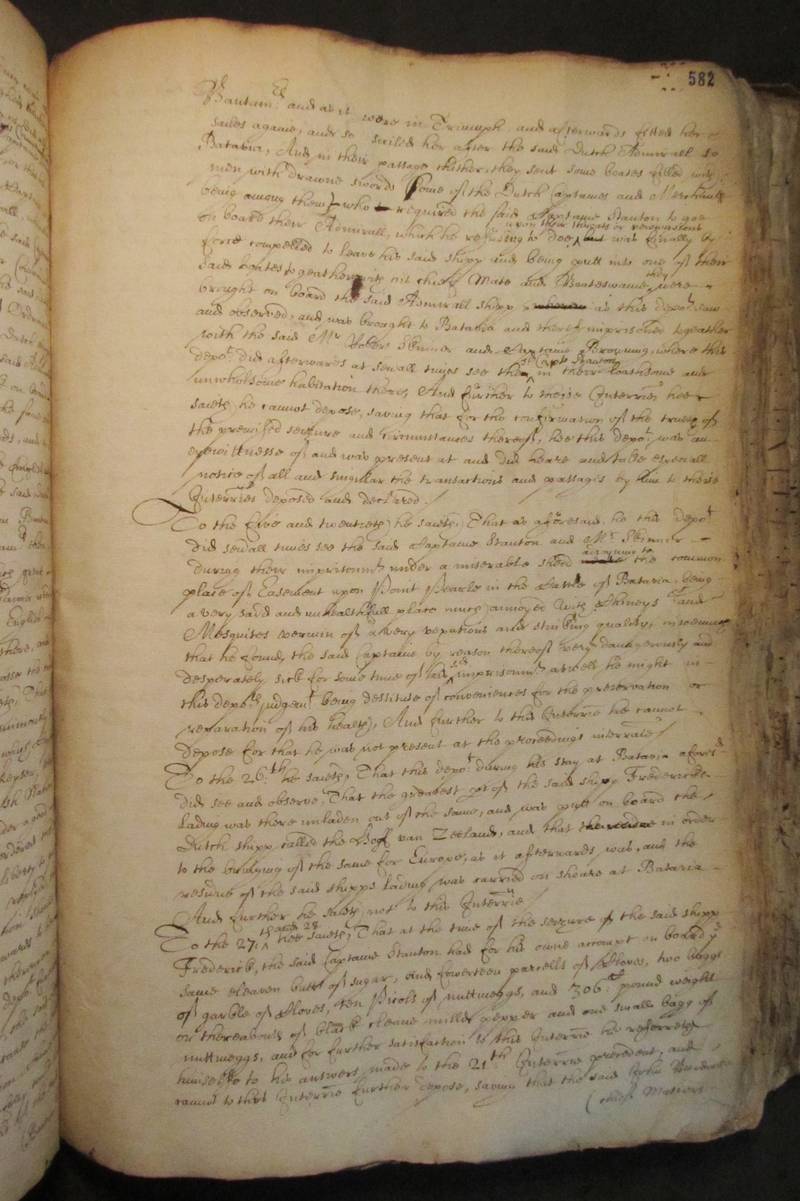 582
Bantam: and as it were in Triumph, and afterwards fitted her
sailes againe, and so sailed her after the said Dutch Admirall to
Batavia, And in their passage thither, they sent some boates filled with
men with drawne swords some of the Dutch Captaines and Merchants
being among them, who required the said Captaine Stanton to goe
on board their Admirall, which he refusing to doe, upon their threats or perswasions was finally by
force compelled to leave his said shipp and being putt into one of their
said boates togeather with his cheife Mate and Boatswaine, they were
brought on board the said Admirall shipp as this depo:t saw
and observed, and was brought to Batavia and there imprisoned togeather
with the said Mr Skinner and Captaine Browning, where this
depo:t did afterwards at severall tymes see the Capt: Stanton in their loathsome and
unwholsome habitation there, And further to theise Interries hee
saieth he cannot depose, saving that for the confirmation of the truth of
the premissed seizure and circumstances thereof, hee this depo:t was an
eyewittnesse of and was present at and did heare and take especiall
notice of all and singular the transactions and passages by him to theise
Interries deposed and declared.
To the five and twentieth he saieth, That as aforesaid, he this depo:t
did severall times see the said Captaine Stanton and Mr Skinner
during their imprisonmt under a miserable shed adjoyning to the common
place of Easement upon Point Pearle in the Castle of Batavia, being
a very sadd and unhealthfull place much annoyed with and
Mosquitos vermin of a very vexatious and stinging quality, insoemuch
that he found the said Captaine by reason thereof very dangerously and
desperately sick for some time of his sd imprisonmt aswell he might in
this depo:ts judgemt being destitute of conveniences for the preservation or
reparation of his health, And further to this Interrie he cannot
depose for that he was not present at the proceedings interrate
To the 26:th he saieth, That this depo:t during his stay at Batavia aforesd
did see and observe, That the greatest pt of the said shipp Fredericks
lading was there unladen out of the same, and was putt on board the
Dutch shipp called the Hoff van Zeeland, and that in order
to the bringing of the same for Europe, as it afterwards was, and the
residue of the said shipps lading was carried on shoare at Batavia
And further he saieth not to this Interrie
To the 27:th and 28 hee saieth, That at the time of the seizure of the said shipp
Frederick, the said Captaine Stanton had for his owne accompt on board ye
same eleaven butts of sugar, and fowerteen parcells of Cloves, two baggs
of garble of Cloves, ten Picols of nuttmeggs, and 306:tt pound weight
or thereabouts of black cleane milld pepper and one small bagg of
nuttmeggs, and for further satisfaction to this Interrie he referreth
himselfe to his answers made to the 21th Interrie precedent, and
cannot to this Interrie further depose, saving that the said
(cheife Mate